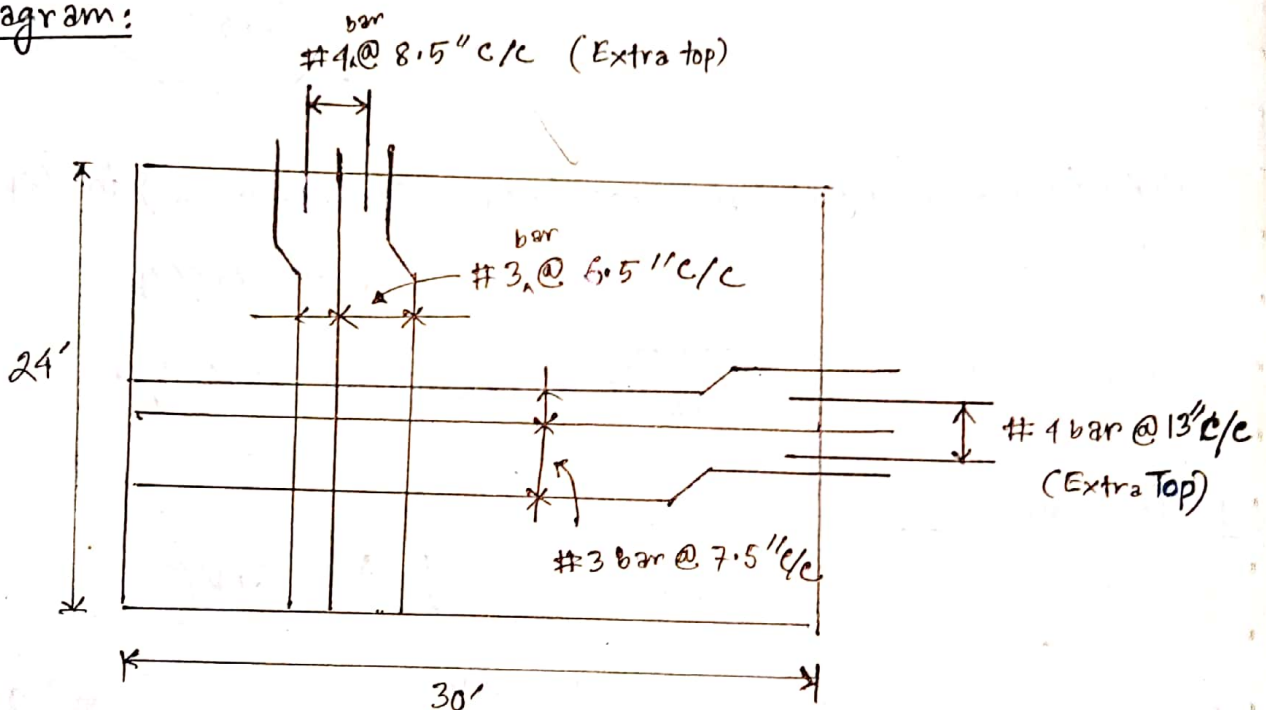 agram:
bar
#4‸@ 8.5" c/c (Extra top)
bar
#3‸@ c/c
24'
#4 bar @ 13" c/c
(Extra Top)
#3 bar @ 7.5" c/c
30'